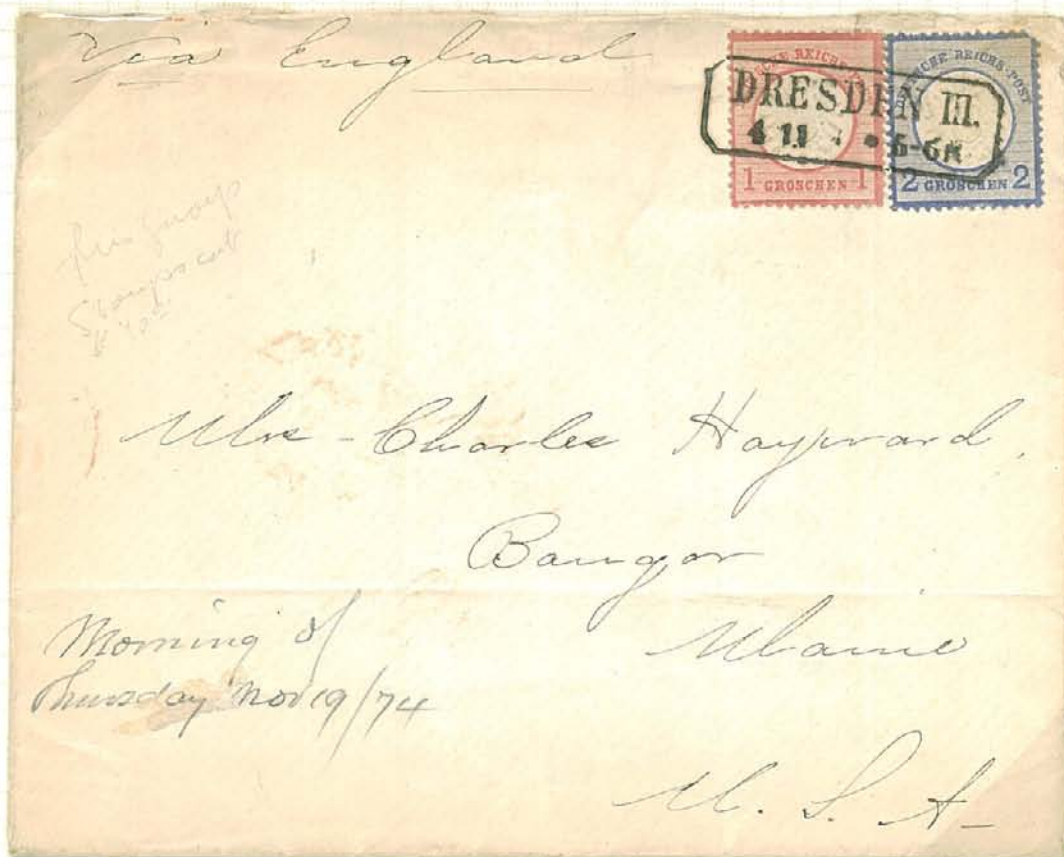 Via England
DEUTSCHE REICHS-POST
1 GROSCHEN 1
DEUTSCHE REICHS-POST
2 GROSCHEN 2
DRESDEN III.
4 11 * 5-6N
Stamps cut
Mrs - Charles Hayward,
Bangor
Maine
U. S. A-
Morning of
Thursday Nov 19/74